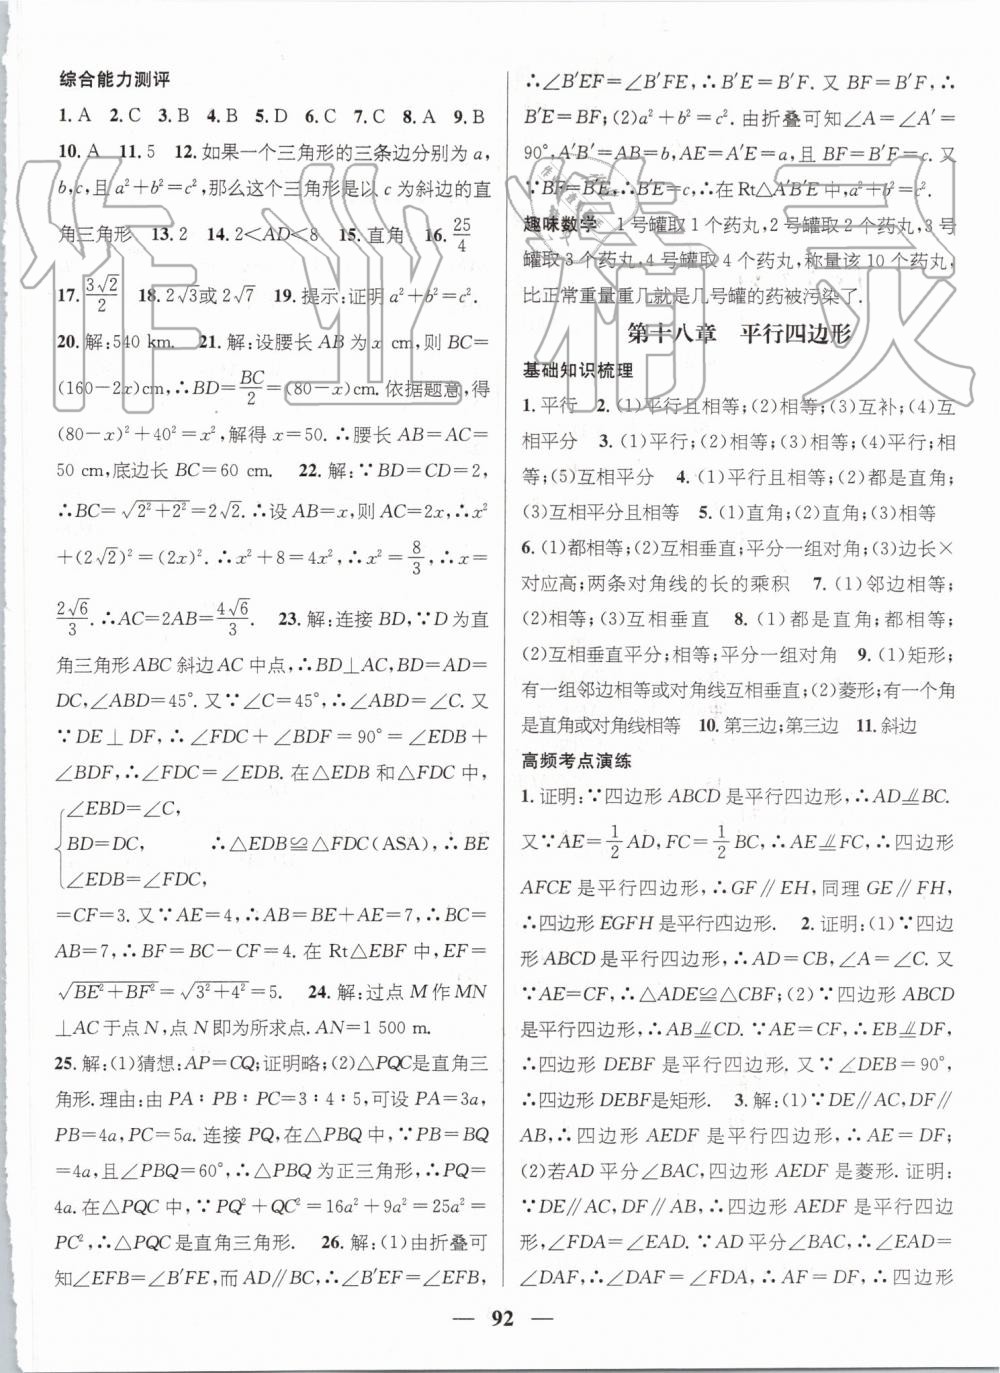 综合能力测评
1. A　2. C　3. B　4. B　5. D　6. C　7. C　8. A　9. B
10. A　11. 5　12. 如果一个三角形的三条边分别为 a,
b,c,且 a²+b²=c²,那么这个三角形是以 c 为斜边的直
角三角形　13. 2　14. 2<AD<8　15. 直角　16. 25/4
17. 3√2/2　18. 2√3或2√7　19. 提示:证明 a²+b²=c².
20. 解:540 km.　21. 解:设腰长 AB 为 x cm,则 BC=
(160-2x)cm,∴BD=BC/2=(80-x)cm.依据题意,得
(80-x)²+40²=x²,解得 x=50.∴腰长 AB=AC=
50 cm,底边长 BC=60 cm.　22. 解:∵BD=CD=2,
∴BC=√(2²+2²)=2√2.∴设 AB=x,则 AC=2x,∴x²
+(2√2)²=(2x)².∴x²+8=4x²,∴x²=8/3,∴x=
2√6/3.∴AC=2AB=4√6/3.　23. 解:连接 BD,∵D 为直
角三角形 ABC 斜边 AC 中点,∴BD⊥AC,BD=AD=
DC,∠ABD=45°.又∵∠C=45°,∴∠ABD=∠C.又
∵DE⊥DF,∴∠FDC+∠BDF=90°=∠EDB+
∠BDF,∴∠FDC=∠EDB.在△EDB 和△FDC 中,
∠EBD=∠C,
BD=DC,　∴△EDB≌△FDC(ASA),∴BE
∠EDB=∠FDC,
=CF=3.又∵AE=4,∴AB=BE+AE=7,∴BC=
AB=7,∴BF=BC-CF=4.在 Rt△EBF 中,EF=
√(BE²+BF²)=√(3²+4²)=5.　24. 解:过点 M 作 MN
⊥AC于点 N,点 N 即为所求点.AN=1 500 m.
25. 解:(1)猜想:AP=CQ;证明略;(2)△PQC是直角三
角形.理由:由 PA∶PB∶PC=3∶4∶5,可设 PA=3a,
PB=4a,PC=5a.连接 PQ,在△PBQ 中,∵PB=BQ
=4a,且∠PBQ=60°,∴△PBQ 为正三角形,∴PQ=
4a.在△PQC 中,∵PQ²+QC²=16a²+9a²=25a²=
PC²,∴△PQC是直角三角形.　26. 解:(1)由折叠可
知∠EFB=∠B′FE,而 AD∥BC,∴∠B′EF=∠EFB,
∴∠B′EF=∠B′FE,∴B′E=B′F.又 BF=B′F,∴
B′E=BF;(2)a²+b²=c².由折叠可知∠A=∠A′=
90°,A′B′=AB=b,AE=A′E=a,且BF=B′F=c.又
∵BF=B′E,∴B′E=c,∴在 Rt△A′B′E 中,a²+b²=c².
趣味数学　1 号罐取 1 个药丸,2 号罐取 2 个药丸,3 号
罐取 3 个药丸,4 号罐取 4 个药丸,称量该 10 个药丸,
比正常重量重几就是几号罐的药被污染了.
第十八章　平行四边形
基础知识梳理
1. 平行　2. (1)平行且相等;(2)相等;(3)互补;(4)互
相平分　3. (1)平行;(2)相等;(3)相等;(4)平行;相
等;(5)互相平分　4. (1)平行且相等;(2)都是直角;
(3)互相平分且相等　5. (1)直角;(2)直角;(3)相等
6. (1)都相等;(2)互相垂直;平分一组对角;(3)边长×
对应高;两条对角线的长的乘积　7. (1)邻边相等;
(2)相等;(3)互相垂直　8. (1)都是直角;都相等;
(2)互相垂直平分;相等;平分一组对角　9. (1)矩形;
有一组邻边相等或对角线互相垂直;(2)菱形;有一个角
是直角或对角线相等　10. 第三边;第三边　11. 斜边
高频考点演练
1. 证明:∵四边形 ABCD 是平行四边形,∴AD⫽BC.
又∵AE=1/2 AD,FC=1/2 BC,∴AE⫽FC,∴四边形
AFCE 是平行四边形,∴GF∥EH,同理 GE∥FH,
∴四边形 EGFH 是平行四边形.　2. 证明:(1)∵四边
形 ABCD 是平行四边形,∴AD=CB,∠A=∠C.又
∵AE=CF,∴△ADE≌△CBF;(2)∵四边形 ABCD
是平行四边形,∴AB⫽CD.∵AE=CF,∴EB⫽DF,
∴四边形 DEBF 是平行四边形.又∵∠DEB=90°,
∴四边形 DEBF是矩形.　3. 解:(1)∵DE∥AC,DF∥
AB,∴四边形 AEDF 是平行四边形,∴AE=DF;
(2)若AD 平分∠BAC,四边形 AEDF 是菱形.证明:
∵DE∥AC,DF∥AB,∴四边形 AEDF 是平行四边形,
∴∠FDA=∠EAD.∵AD 平分∠BAC,∴∠EAD=
∠DAF,∴∠DAF=∠FDA,∴AF=DF,∴四边形
— 92 —